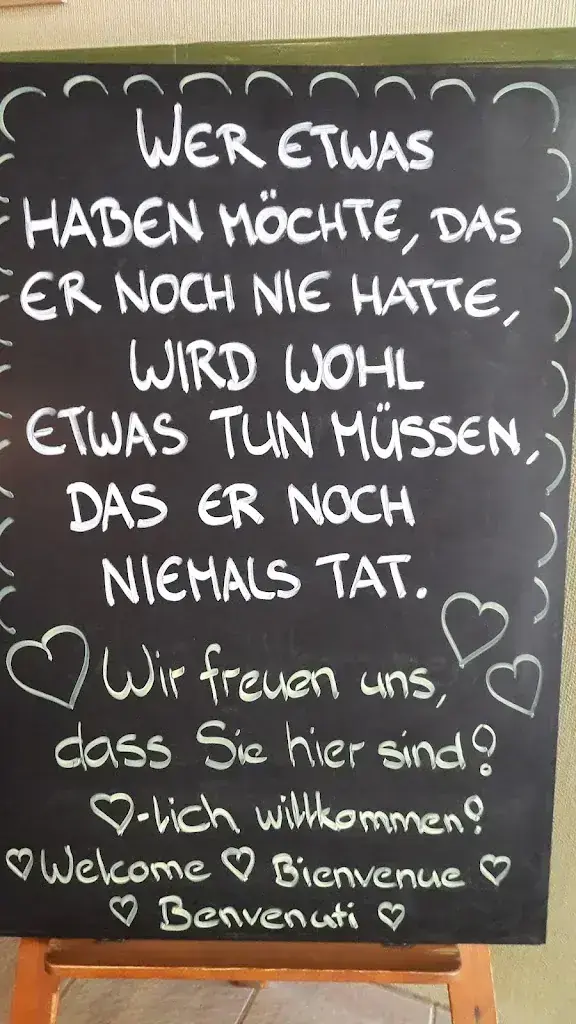 WER ETWAS
HABEN MÖCHTE, DAS
ER NOCH NIE HATTE,
WIRD WOHL
ETWAS TUN MÜSSEN,
DAS ER NOCH
NIEMALS TAT.
Wir freuen uns,
dass Sie hier sind!
♡-lich willkommen!
♡ Welcome ♡ Bienvenue ♡
♡ Benvenuti ♡